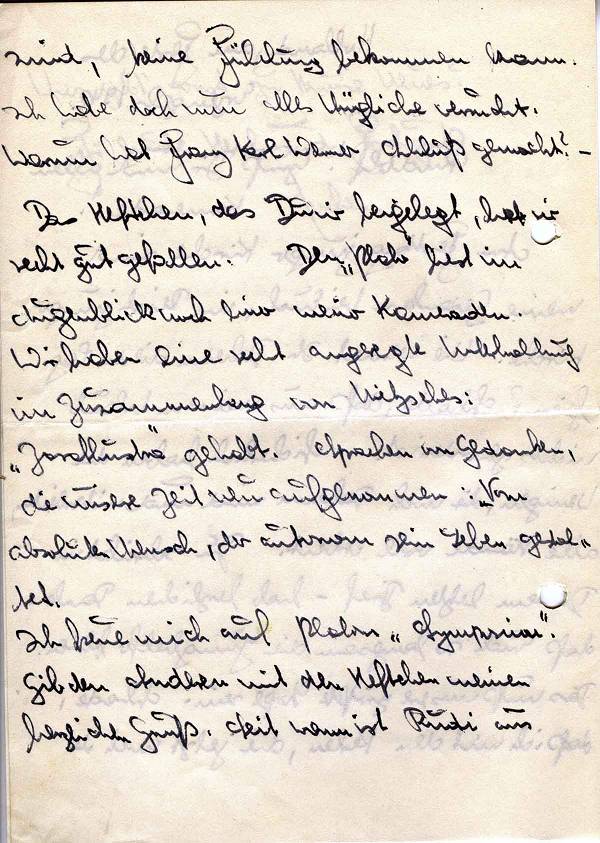 sind, keine Fühlung bekommen kann.
Ich habe doch nun alles Mögliche versucht.
Warum hat Franz Karl Werner Schluß gemacht? –
Das Heftchen, das Du mir beigelegt, hat mir
recht gut gefallen. Den „Plato“ liest im
Augenblick noch einer meiner Kameraden.
Wir haben eine recht angeregte Unterhaltung
im Zusammenhang von Nietzsches:
„Zarathustra“ gehabt. Sprachen von Gedanken,
die unsere Zeit neu aufgenommen: „Vom
absoluten Mensch, der autonom sein Leben gestal-
tet.
Ich freue mich auf Platons „Symposion“.
Gib den Anderen mit den Heftchen meinen
herzlichen Gruß. Seit wann ist Rudi aus